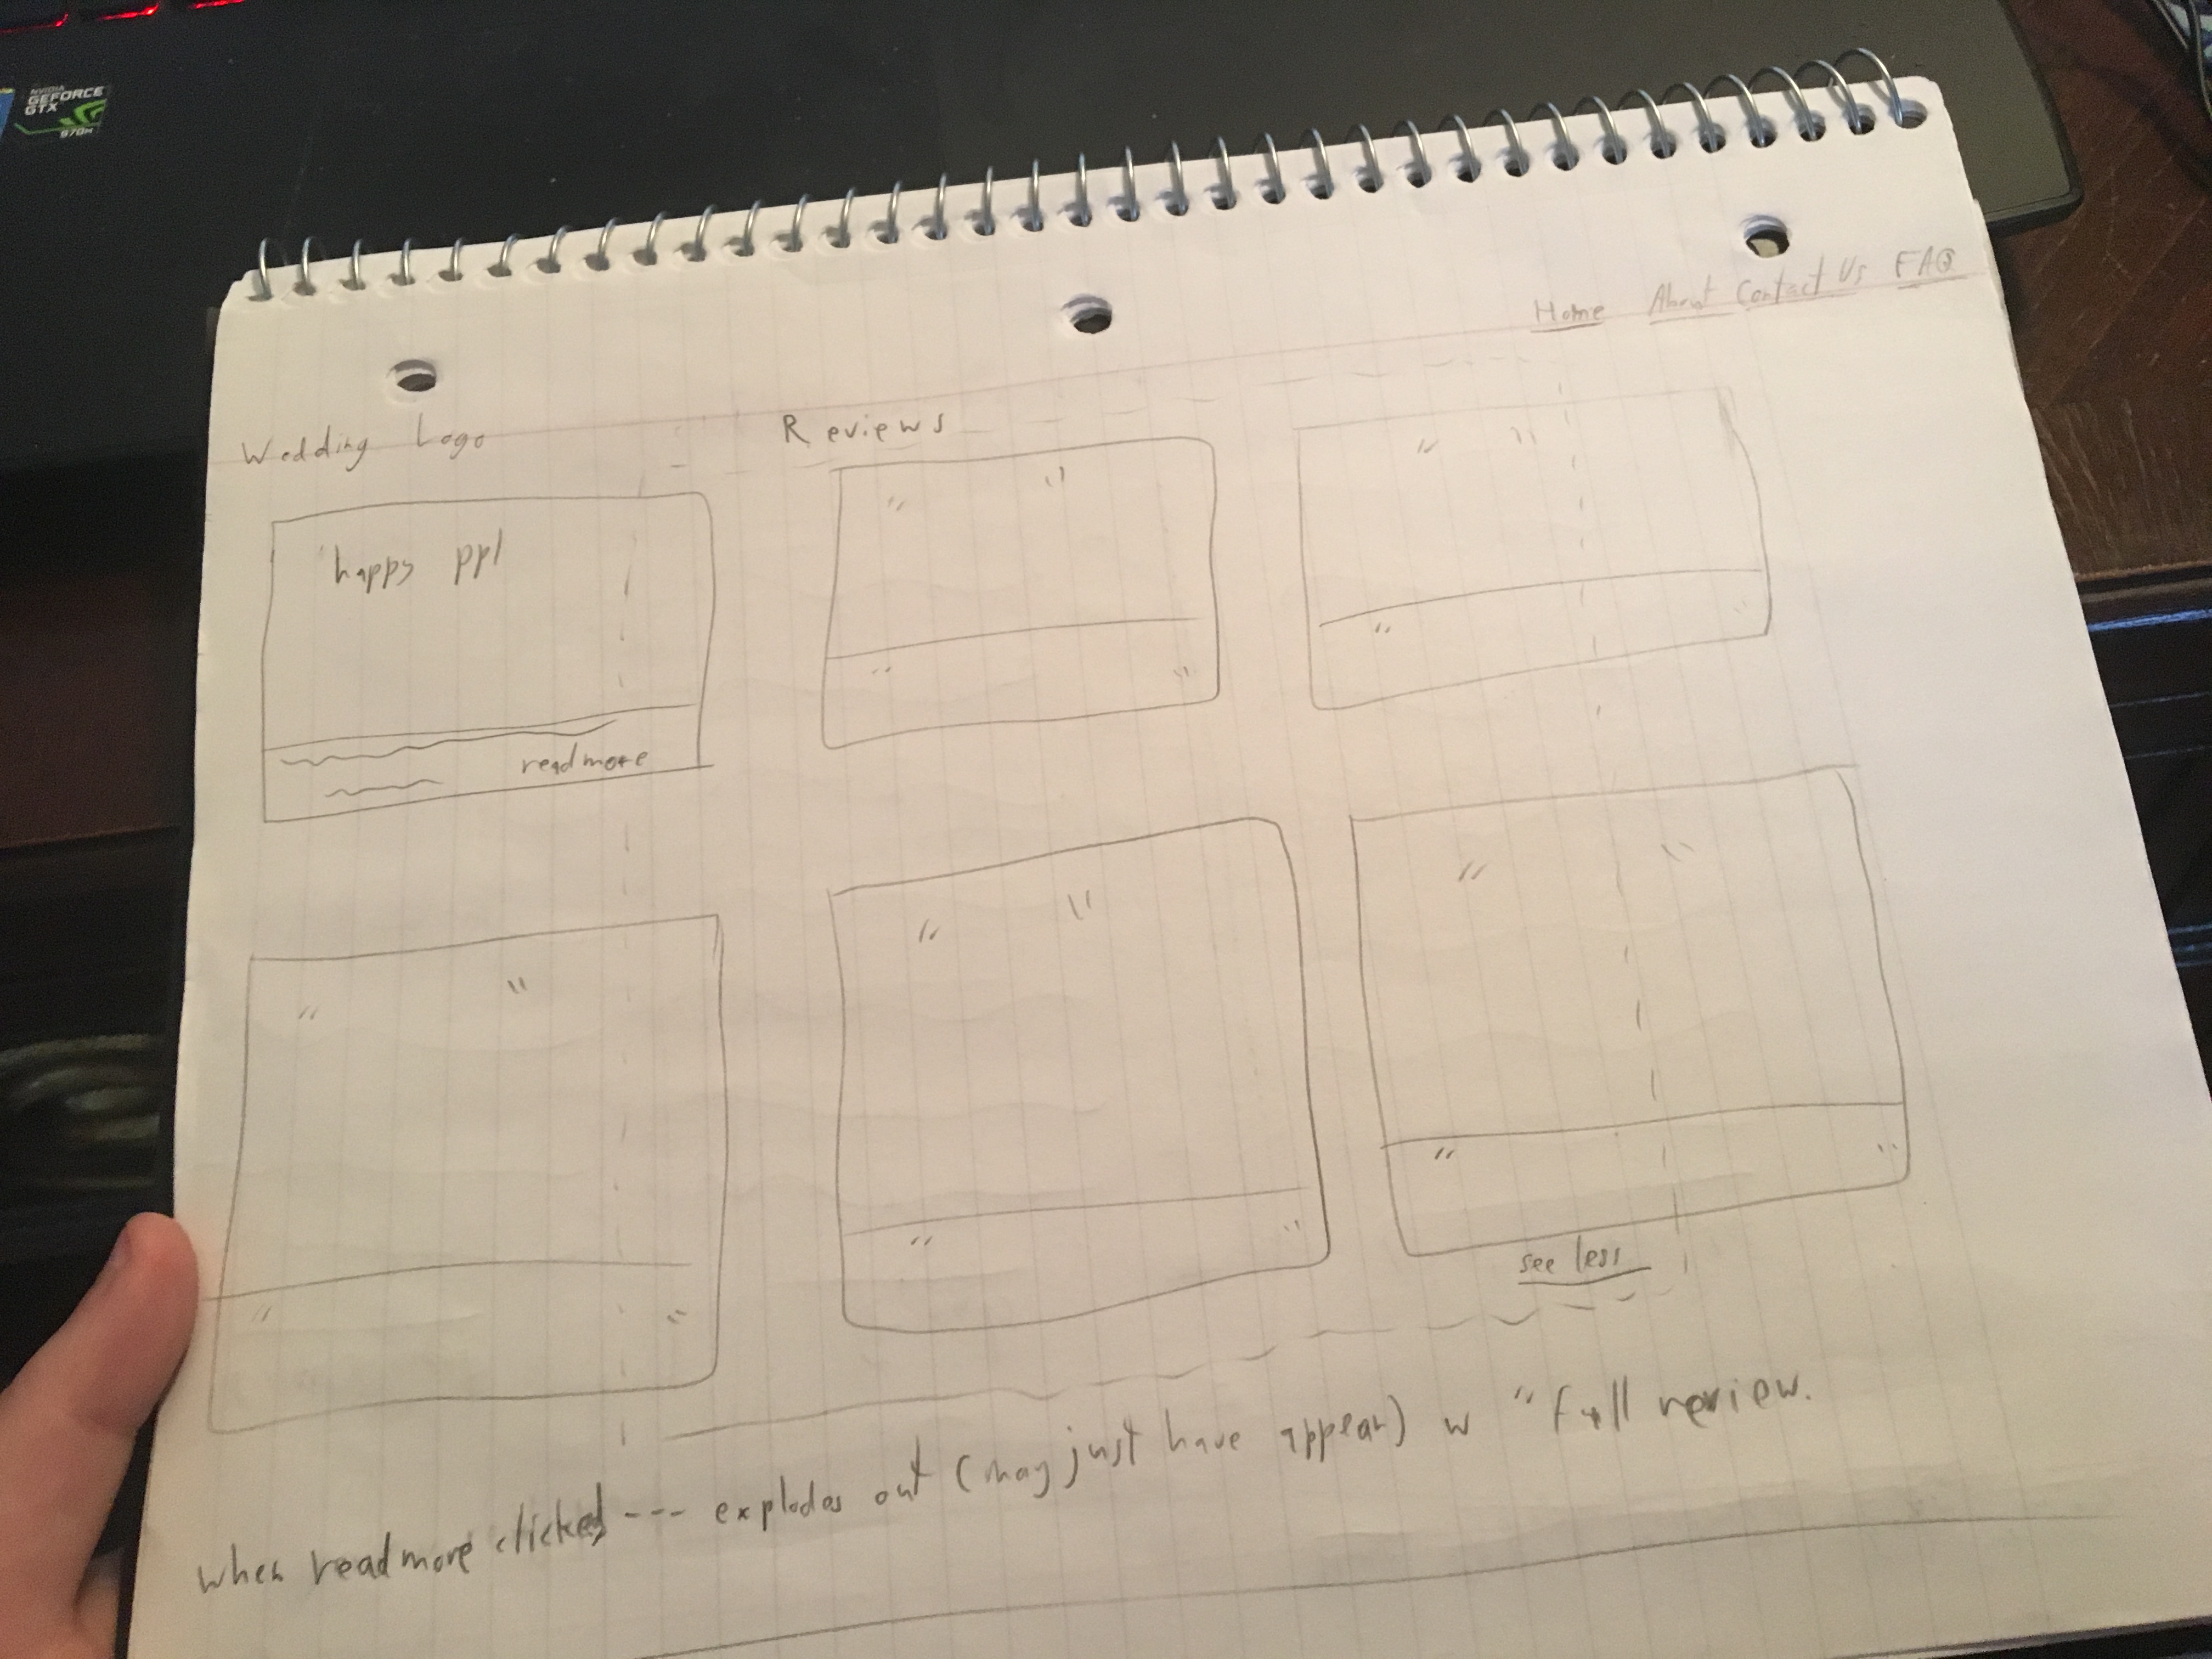 NVIDIA
GEFORCE
GTX
970M
Home About Contact Us FAQ
Wedding Logo
Reviews
happy ppl
" "
" "
readmore
" "
"
" "
" "
" "
" "
" "
" "
see less
when readmore clicked --- explodes out (may just have appear) w " full review.